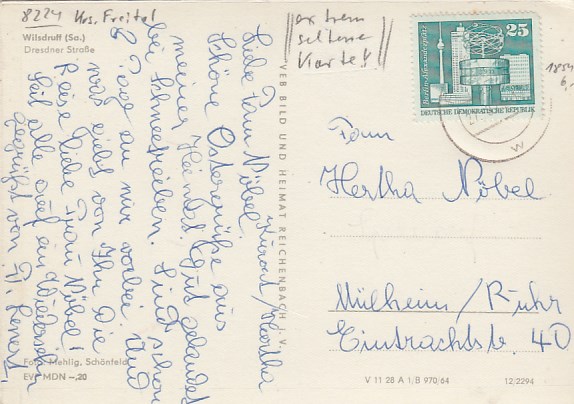 8224 Krs. Freital
Wilsdruff (Sa.)
Dresdner Straße
extrem
seltene
Karte!
Liebe Frau Nöbel
Schöne Ostergrüße aus
meiner Heimat. Gut gelandet
bei Schneetreiben. Sind schon
8 Tage an mir vorbei. Und
was von Ihr Die
Reise liebe Frau Nöbel!
Seit alle auf ein Wiedersehn
gegrüßt von
Foto: Mehlig, Schönfeld
EVP MDN –,20
VEB BILD UND HEIMAT REICHENBACH i. V.
25
Berlin-Alexanderplatz
DEUTSCHE DEMOKRATISCHE REPUBLIK
1854
6,-
W
Frau
Hertha Nöbel
Mülheim/Ruhr
Eintrachtstr. 40
V 11 28 A 1/B 970/64
12/2294